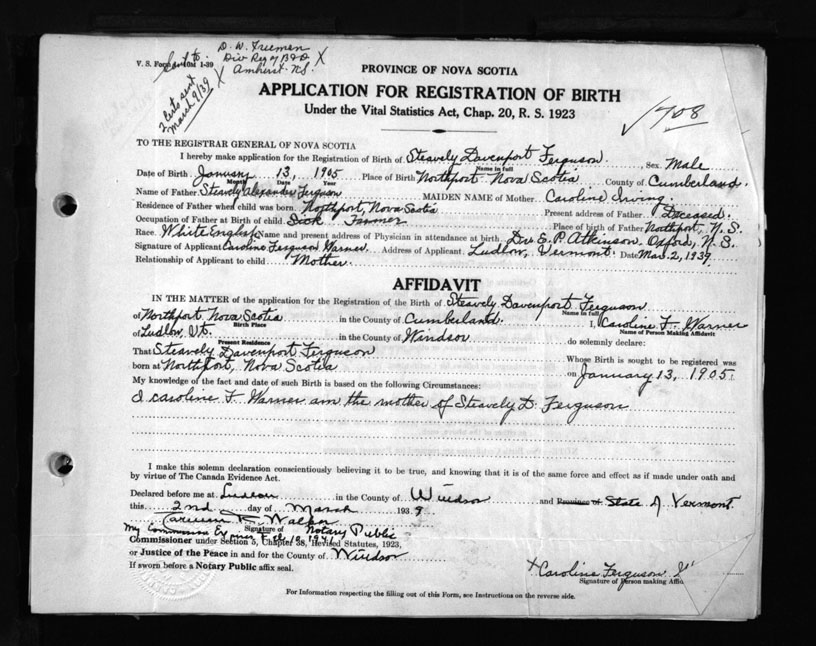 D. W. Freeman
Sent to Div Reg of B & D X
V. S. Form 10M 1-39
Amherst N.S.
X
March 9/39
PROVINCE OF NOVA SCOTIA
APPLICATION FOR REGISTRATION OF BIRTH
Under the Vital Statistics Act, Chap. 20, R. S. 1923
708
TO THE REGISTRAR GENERAL OF NOVA SCOTIA
I hereby make application for the Registration of Birth of Steavely Davenport Ferguson. Sex Male
Name in full
Date of Birth January 13, 1905 Place of Birth Northport Nova Scotia County of Cumberland.
Month Date Year
Name of Father Steavely Alexander Ferguson MAIDEN NAME of Mother Caroline Irving
Residence of Father when child was born. Northport, Nova Scotia Present address of Father Deceased.
Occupation of Father at Birth of child. Farmer Place of birth of Father Northport, N. S.
Race. White English Name and present address of Physician in attendance at birth E. P. Atkinson. Oxford, N. S.
Signature of Applicant Caroline Ferguson Warner Address of Applicant Ludlow, Vermont. Date Mar. 2, 1939
Relationship of Applicant to child Mother.
AFFIDAVIT
IN THE MATTER of the application for the Registration of the Birth of Steavely Davenport Ferguson
Name in full
of Northport Nova Scotia in the County of Cumberland. I, Caroline F. Warner
Birth Place Name of Person Making Affidavit
of Ludlow, Vt. in the County of Windsor do solemnly declare:
Present Residence
That Steavely Davenport Ferguson Whose Birth is sought to be registered was
born at Northport, Nova Scotia on January 13, 1905.
My knowledge of the fact and date of such Birth is based on the following Circumstances:
I caroline F. Warner am the mother of Steavely D. Ferguson
I make this solemn declaration conscientiously believing it to be true, and knowing that it is of the same force and effect as if made under oath and
by virtue of The Canada Evidence Act.
Declared before me at Ludlow in the County of Windsor and Province of State of Vermont.
this 2nd day of March 1939
Signature of Notary Public
My Commission Expires Feb 10 1941
Commissioner under Section 5, Chapter 38, Revised Statutes, 1923,
or Justice of the Peace in and for the County of Windsor
If sworn before a Notary Public affix seal.
X Caroline Ferguson
Signature of Person making Affid
For Information respecting the filling out of this Form, see Instructions on the reverse side.